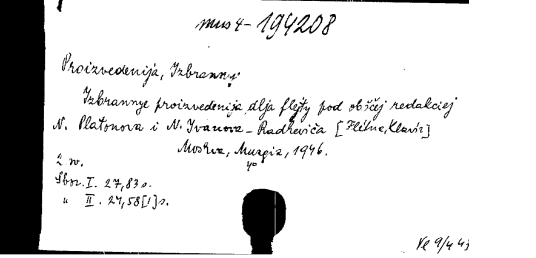 mus 4-194208
Proizvedenija, Izbrannye
Izbrannye proizvedenija dlja flejty pod obščej redakciej
N. Platonova i N. Ivanova-Radkeviča [Flétna, Klavír]
Moskva, Muzgiz, 1946.
4°
2 sv.
Sbor. I. 27,83 s.
" II. 24,58[1] s.